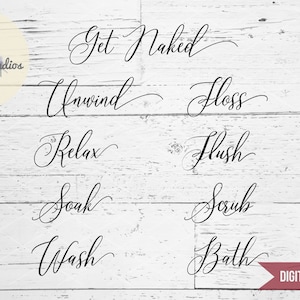 Get Naked
Unwind Floss
Relax Flush
Soak Scrub
Wash Bath